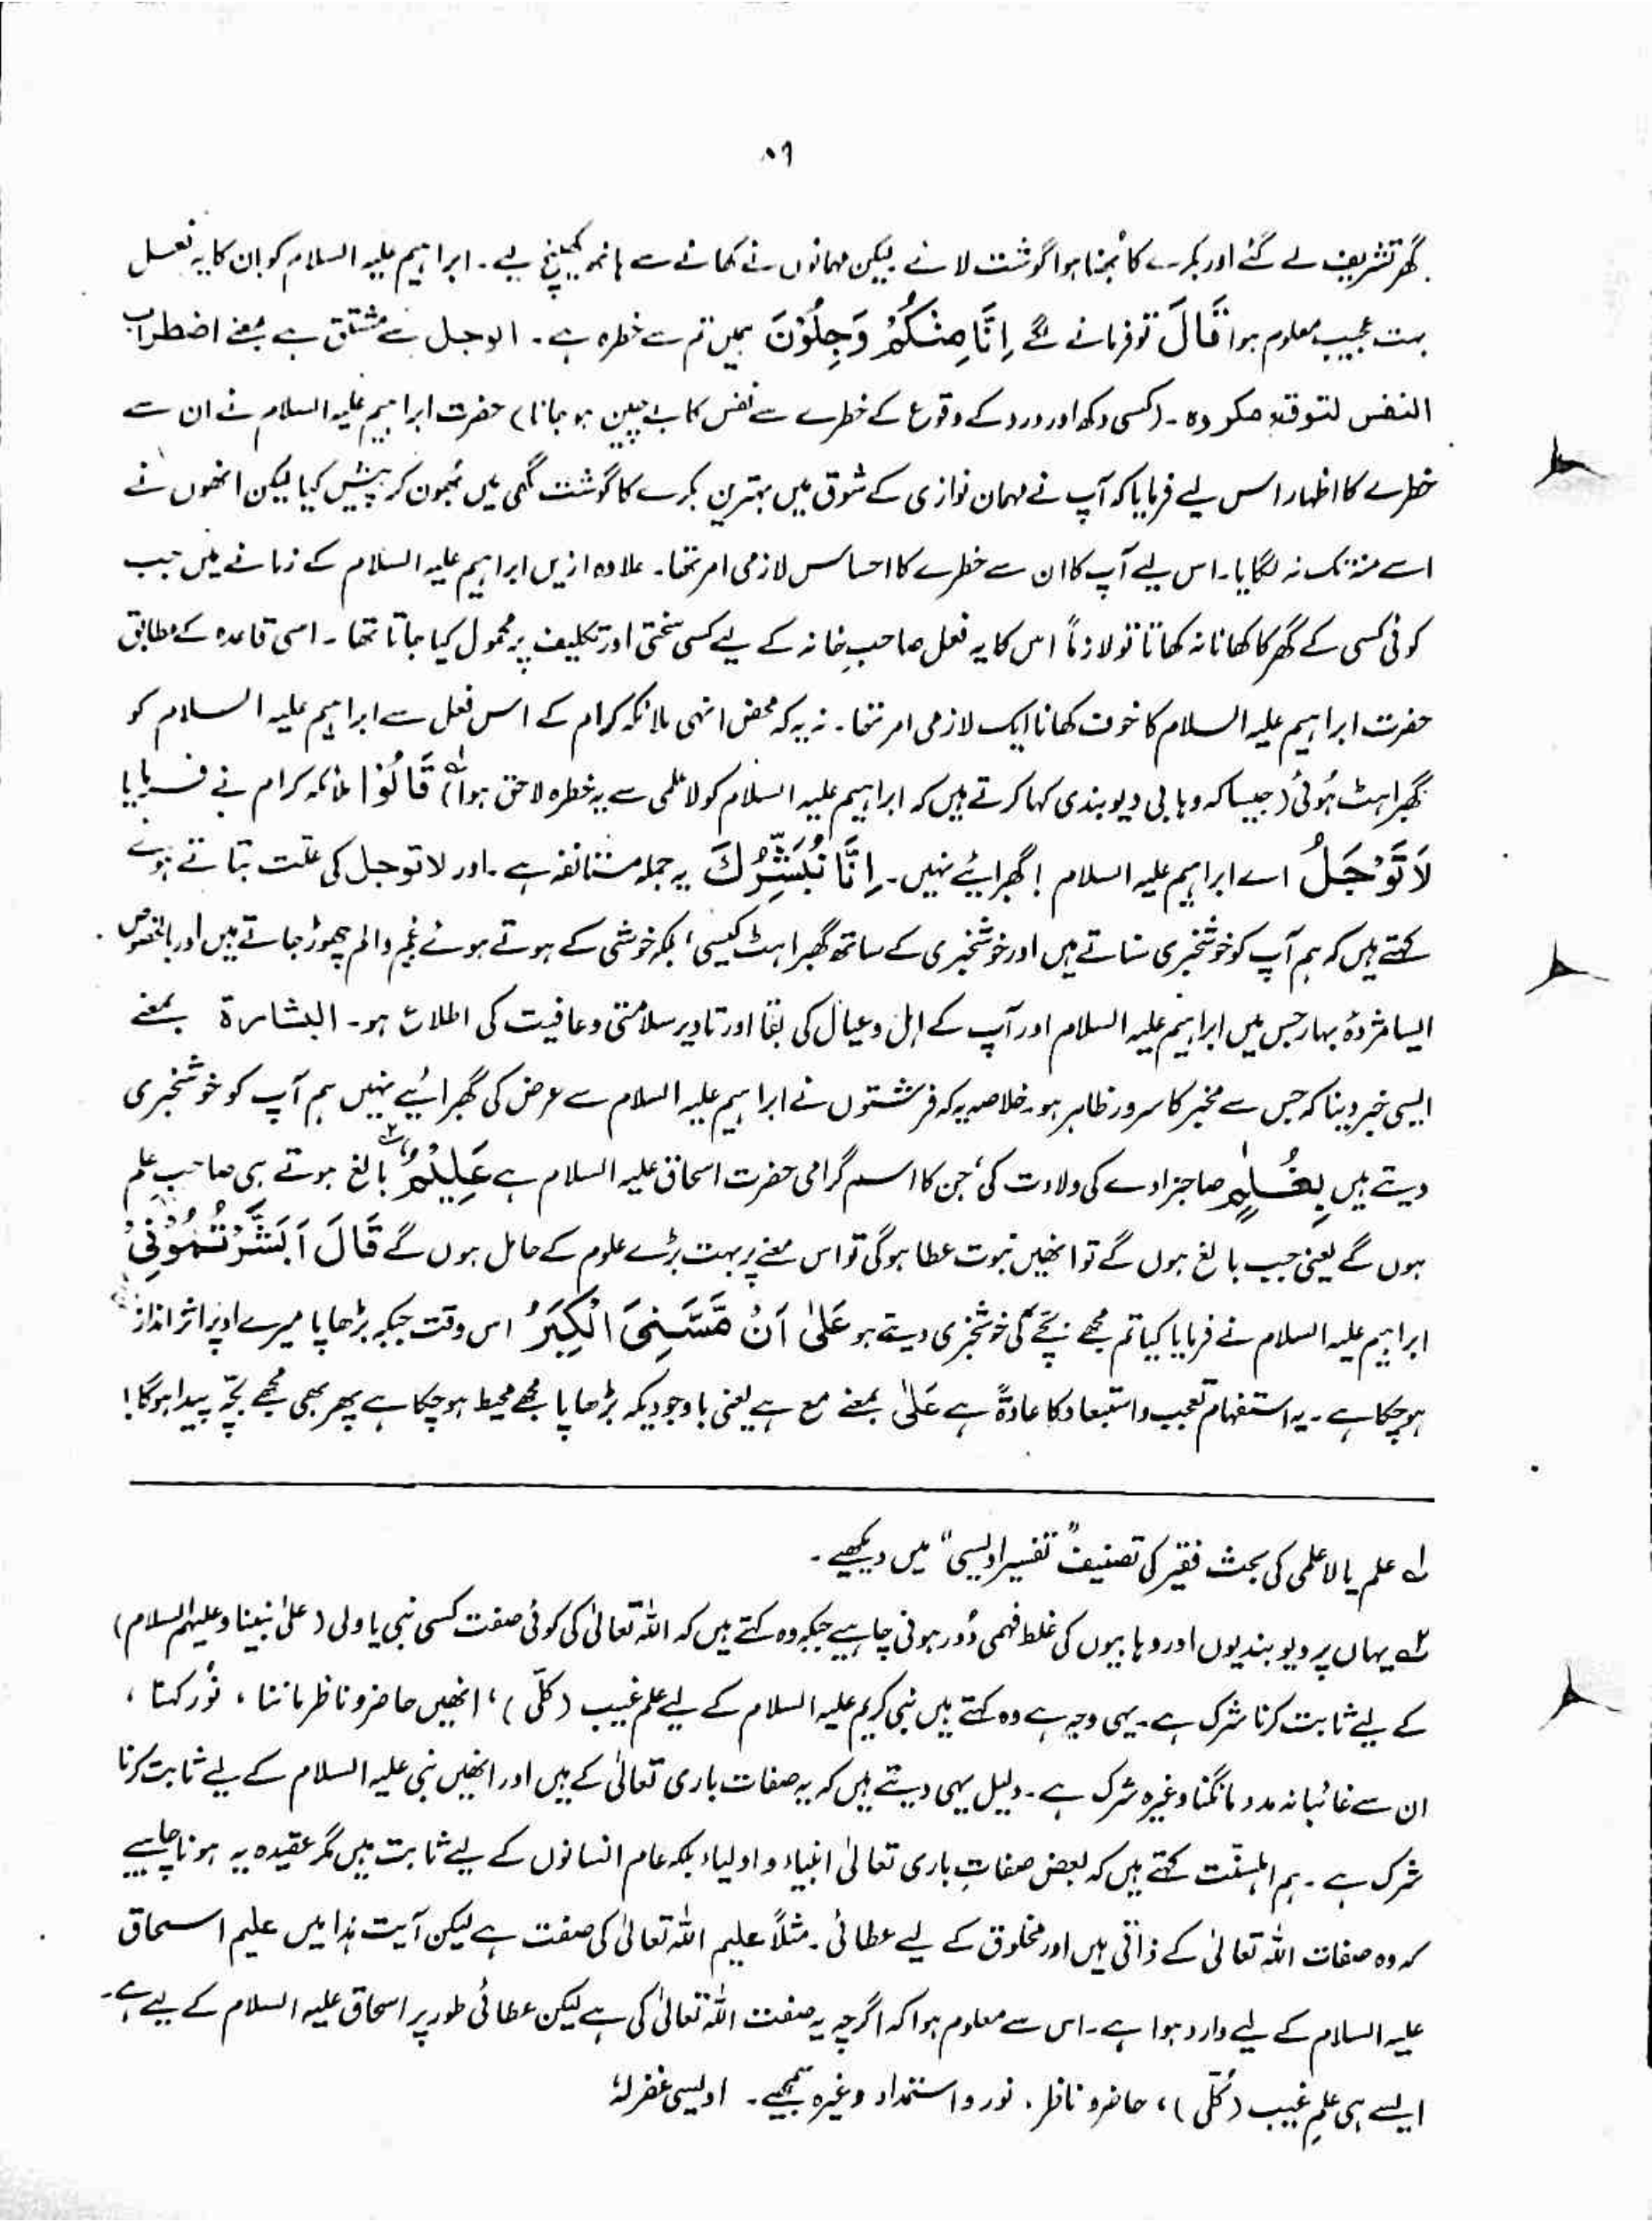 ۵۶
گھر تشریف لے گئے اور بکرے کا بُھنا ہوا گوشت لائے لیکن مہمانوں نے کھانے سے ہاتھ کھینچ لیے۔ ابراہیم علیہ السلام کو ان کا یہ فعل
بہت عجیب معلوم ہوا قَالَ تو فرمانے لگے اِنَّا مِنْکُمْ وَجِلُوْنَ ہمیں تم سے خطرہ ہے۔ الوجل سے مشتق ہے بمعنے اضطراب
النفس لتوقع مکروہ۔ (کسی دکھ اور درد کے وقوع کے خطرے سے نفس کا بے چین ہو جانا) حضرت ابراہیم علیہ السلام نے ان سے
خطرے کا اظہار اس لیے فرمایا کہ آپ نے مہمان نوازی کے شوق میں بہترین بکرے کا گوشت گھی میں بُھون کر پیش کیا لیکن انھوں نے
اسے منہ تک نہ لگایا۔ اس لیے آپ کا ان سے خطرے کا احساس لازمی امر تھا۔ علاوہ ازیں ابراہیم علیہ السلام کے زمانے میں جب
کوئی کسی کے گھر کا کھانا نہ کھاتا تو لازماً اس کا یہ فعل صاحبِ خانہ کے لیے کسی سختی اور تکلیف پر محمول کیا جاتا تھا۔ اسی قاعدہ کے مطابق
حضرت ابراہیم علیہ السلام کا خوف کھانا ایک لازمی امر تھا۔ نہ یہ کہ محض انہی ملائکہ کرام کے اس فعل سے ابراہیم علیہ السلام کو
گھبراہٹ ہُوئی (جیسا کہ وہابی دیوبندی کہا کرتے ہیں کہ ابراہیم علیہ السلام کو لاعلمی سے یہ خطرہ لاحق ہوا)؎۱ قَالُوْا ملائکہ کرام نے فرمایا
لَا تَوْجَلْ اے ابراہیم علیہ السلام! گھبرائیے نہیں۔ اِنَّا نُبَشِّرُكَ یہ جملہ مستانفہ ہے۔ اور لا توجل کی علّت بتاتے ہوئے
کہتے ہیں کہ ہم آپ کو خوشخبری سناتے ہیں اور خوشخبری کے ساتھ گھبراہٹ کیسی، بلکہ خوشی کے ہوتے ہوئے غم و الم چھوڑ جاتے ہیں اور بالخصوص
ایسا مژدۂ بہار جس میں ابراہیم علیہ السلام اور آپ کے اہل و عیال کی بقا اور تا دیر سلامتی و عافیت کی اطلاع ہو۔ البشارۃ بمعنے
ایسی خبر دینا کہ جس سے مخبر کا سرور ظاہر ہو۔ خلاصہ یہ کہ فرشتوں نے ابراہیم علیہ السلام سے عرض کی گھبرائیے نہیں ہم آپ کو خوشخبری
دیتے ہیں بِغُلٰمٍ صاجزادے کی ولادت کی، جن کا اسم گرامی حضرت اسحاق علیہ السلام ہے عَلِیْمٍ؎۲ بالغ ہوتے ہی صاحبِ علم
ہوں گے یعنی جب بالغ ہوں گے تو انھیں نبوت عطا ہوگی تو اس معنے پر بہت بڑے علوم کے حامل ہوں گے قَالَ اَبَشَّرْتُمُوْنِیْ
ابراہیم علیہ السلام نے فرمایا کیا تم مجھے بچّے کی خوشخبری دیتے ہو عَلٰی اَنْ مَّسَّنِیَ الْکِبَرُ اس وقت جبکہ بڑھاپا میرے اوپر اثر انداز
ہو چکا ہے۔ یہ استفہام تعجب و استبعاد کا عادۃً ہے عَلٰی بمعنے مع ہے یعنی باوجودیکہ بڑھاپا مجھے محیط ہو چکا ہے پھر بھی مجھے بچّہ پیدا ہوگا!
؎۱ علم یا لاعلمی کی بحث فقیر کی تصنیف "تفسیر اویسی" میں دیکھیے۔
؎۲ یہاں پر دیوبندیوں اور وہابیوں کی غلط فہمی دُور ہونی چاہیے جبکہ وہ کہتے ہیں کہ اللہ تعالیٰ کی کوئی صفت کسی نبی یا ولی (علیٰ نبینا وعلیہم السلام)
کے لیے ثابت کرنا شرک ہے۔ یہی وجہ ہے وہ کہتے ہیں نبی کریم علیہ السلام کے لیے علم غیب (کلّی)، انھیں حاضر و ناظر ماننا، نُور کہنا،
ان سے غائبانہ مدد مانگنا وغیرہ شرک ہے۔ دلیل یہی دیتے ہیں کہ یہ صفات باری تعالیٰ کے ہیں اور انھیں نبی علیہ السلام کے لیے ثابت کرنا
شرک ہے۔ ہم اہلسنّت کہتے ہیں کہ بعض صفاتِ باری تعالیٰ انبیاء و اولیاء بلکہ عام انسانوں کے لیے ثابت ہیں مگر عقیدہ یہ ہونا چاہیے
کہ وہ صفات اللہ تعالیٰ کے ذاتی ہیں اور مخلوق کے لیے عطائی۔ مثلاً علیم اللہ تعالیٰ کی صفت ہے لیکن آیت ہذا میں علیم اسحاق
علیہ السلام کے لیے وارد ہوا ہے۔ اس سے معلوم ہوا کہ اگرچہ یہ صفت اللہ تعالیٰ کی ہے لیکن عطائی طور پر اسحاق علیہ السلام کے لیے ہے۔
ایسے ہی علمِ غیب (کُلّی)، حاضر و ناظر، نور و استمداد وغیرہ سمجھیے۔ اویسی غفرلہٗ